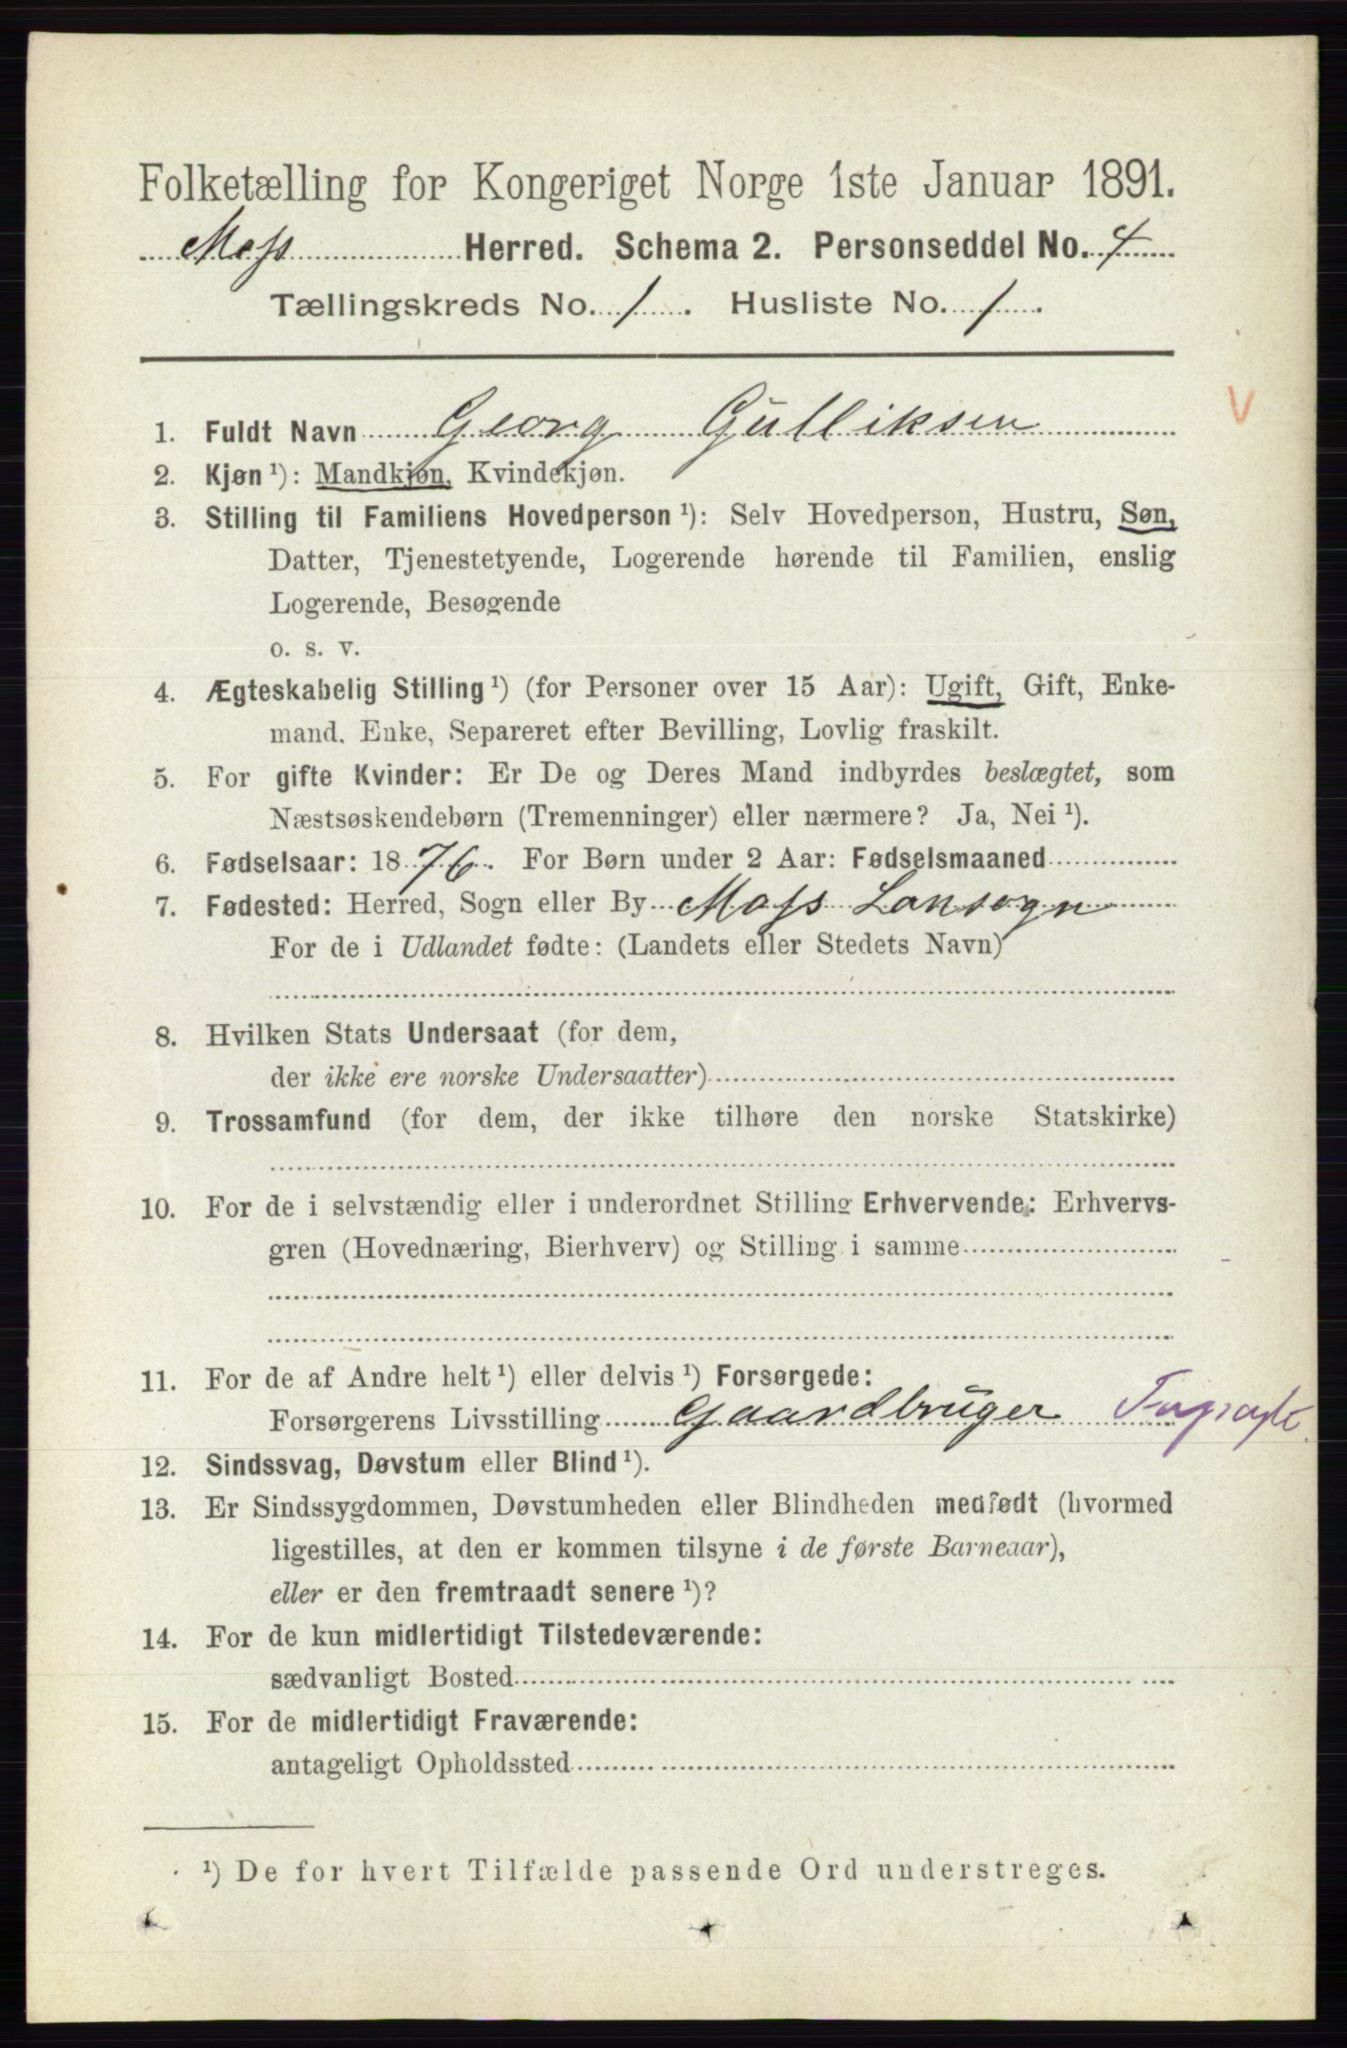 Folketælling for Kongeriget Norge 1ste Januar 1891.
Moss Herred. Schema 2. Personseddel No. 4
Tællingskreds No. 1. Husliste No. 1.
1. Fuldt Navn Georg Gulliksen
V
2. Kjøn¹): Mandkjøn, Kvindekjøn.
3. Stilling til Familiens Hovedperson¹): Selv Hovedperson, Hustru, Søn,
Datter, Tjenestetyende, Logerende hørende til Familien, enslig
Logerende, Besøgende
o. s. v.
4. Ægteskabelig Stilling¹) (for Personer over 15 Aar): Ugift, Gift, Enke-
mand, Enke, Separeret efter Bevilling, Lovlig fraskilt.
5. For gifte Kvinder: Er De og Deres Mand indbyrdes beslægtet, som
Næstsøskendebørn (Tremenninger) eller nærmere? Ja, Nei¹).
6. Fødselsaar: 1876. For Børn under 2 Aar: Fødselsmaaned
7. Fødested: Herred, Sogn eller By Moss Lansogn
For de i Udlandet fødte: (Landets eller Stedets Navn)
8. Hvilken Stats Undersaat (for dem,
der ikke ere norske Undersaatter)
9. Trossamfund (for dem, der ikke tilhøre den norske Statskirke)
10. For de i selvstændig eller i underordnet Stilling Erhvervende: Erhvervs-
gren (Hovednæring, Bierhverv) og Stilling i samme
11. For de af Andre helt¹) eller delvis¹) Forsørgede:
Forsørgerens Livsstilling Gaardbruger
12. Sindssvag, Døvstum eller Blind¹).
13. Er Sindssygdommen, Døvstumheden eller Blindheden medfødt (hvormed
ligestilles, at den er kommen tilsyne i de første Barneaar),
eller er den fremtraadt senere¹)?
14. For de kun midlertidigt Tilstedeværende:
sædvanligt Bosted
15. For de midlertidigt Fraværende:
antageligt Opholdssted
¹) De for hvert Tilfælde passende Ord understreges.